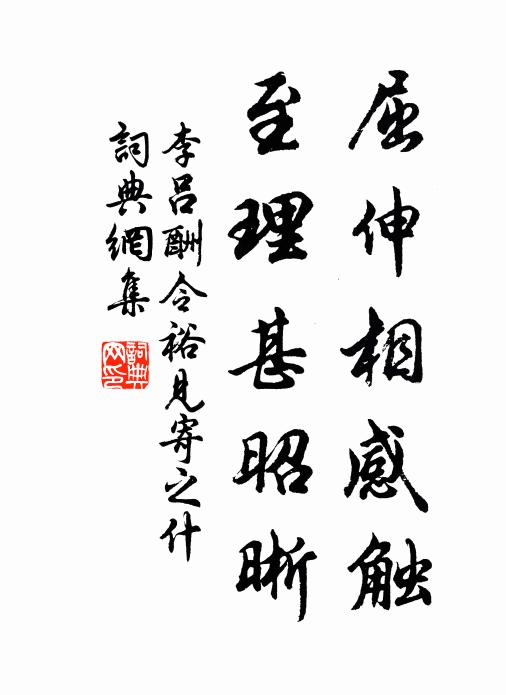 屈伸相感触
至理甚昭晣
李吕酬令裕见寄之什
詞典網集
詞典网印